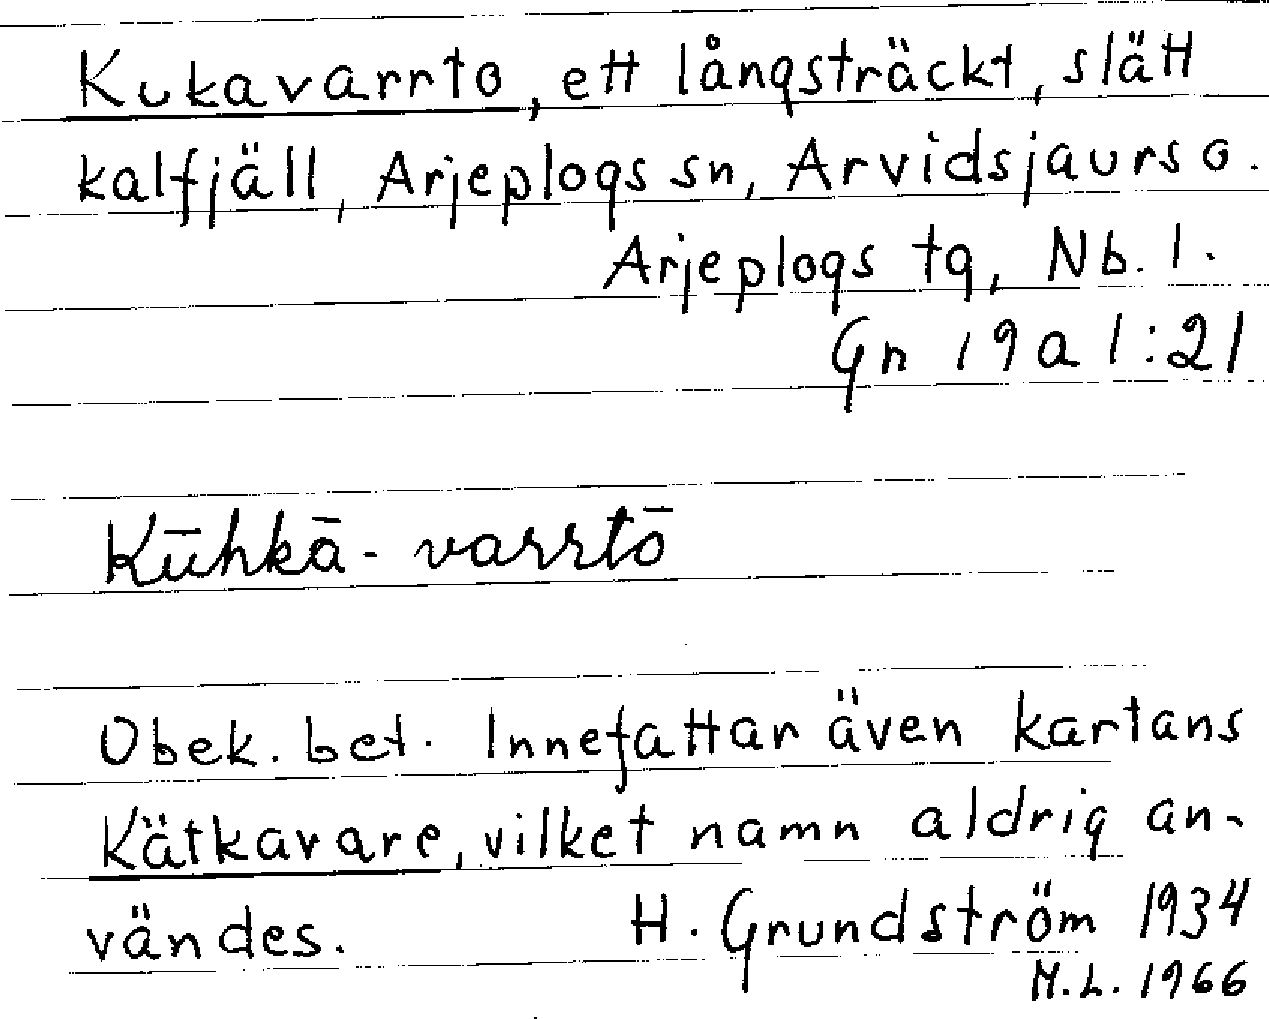 Kukavarrto, ett långsträckt, slätt
kalfjäll, Arjeplogs sn, Arvidsjaurs o.
Arjeplogs tg, Nb. l.
Gn 19 a 1:21
Kūhkā-varrtō
Obek. bet. Innefattar även kartans
Kätkavare, vilket namn aldrig an-
vändes. H. Grundström 1934
M.L. 1966